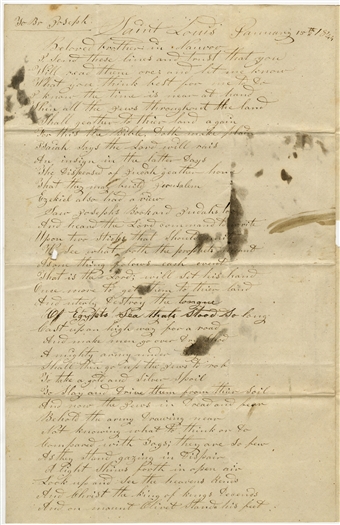 Saint Louis January 18th 184
Beloved brethren in Nauvoo
I Send these lines and trust that you
Will read them over and let me know
What you think best for to do
I know the time is near at hand
When all the Jews throughout the land
Shall geather to their land again
For this the Bible doth make plain
Isaiah Says the Lord will rais
An insign in the latter days
The dispersed of Judah geather home
That they may build jerusalem
Ezekiel also had a view
Saw Josephs book and Judahs to
And heard the Lord command to write
Upon two Sticks that should
the prophets
each event
That is the Lord will set his hand
Once more to get them to their land
And uterly destroy the tongue
Of Egypts Sea thats Stood So long
Cast up an high way for a road
And make men go over dry
A mighty army under
Shall then go up the Jews to rob
To take a gold and Silver Spoil
To Slay and drive them from their Soil
And now the Jews in dread and fear
Behold the army drawing near
Not knowing what to think or do
Compared with Gogs they are so few
As they Stand gazing in dispair
A light Shines forth in open air
Look up and See the heavens rend
And Christ the king of kings decends
And on mount Olivet Stands his feet